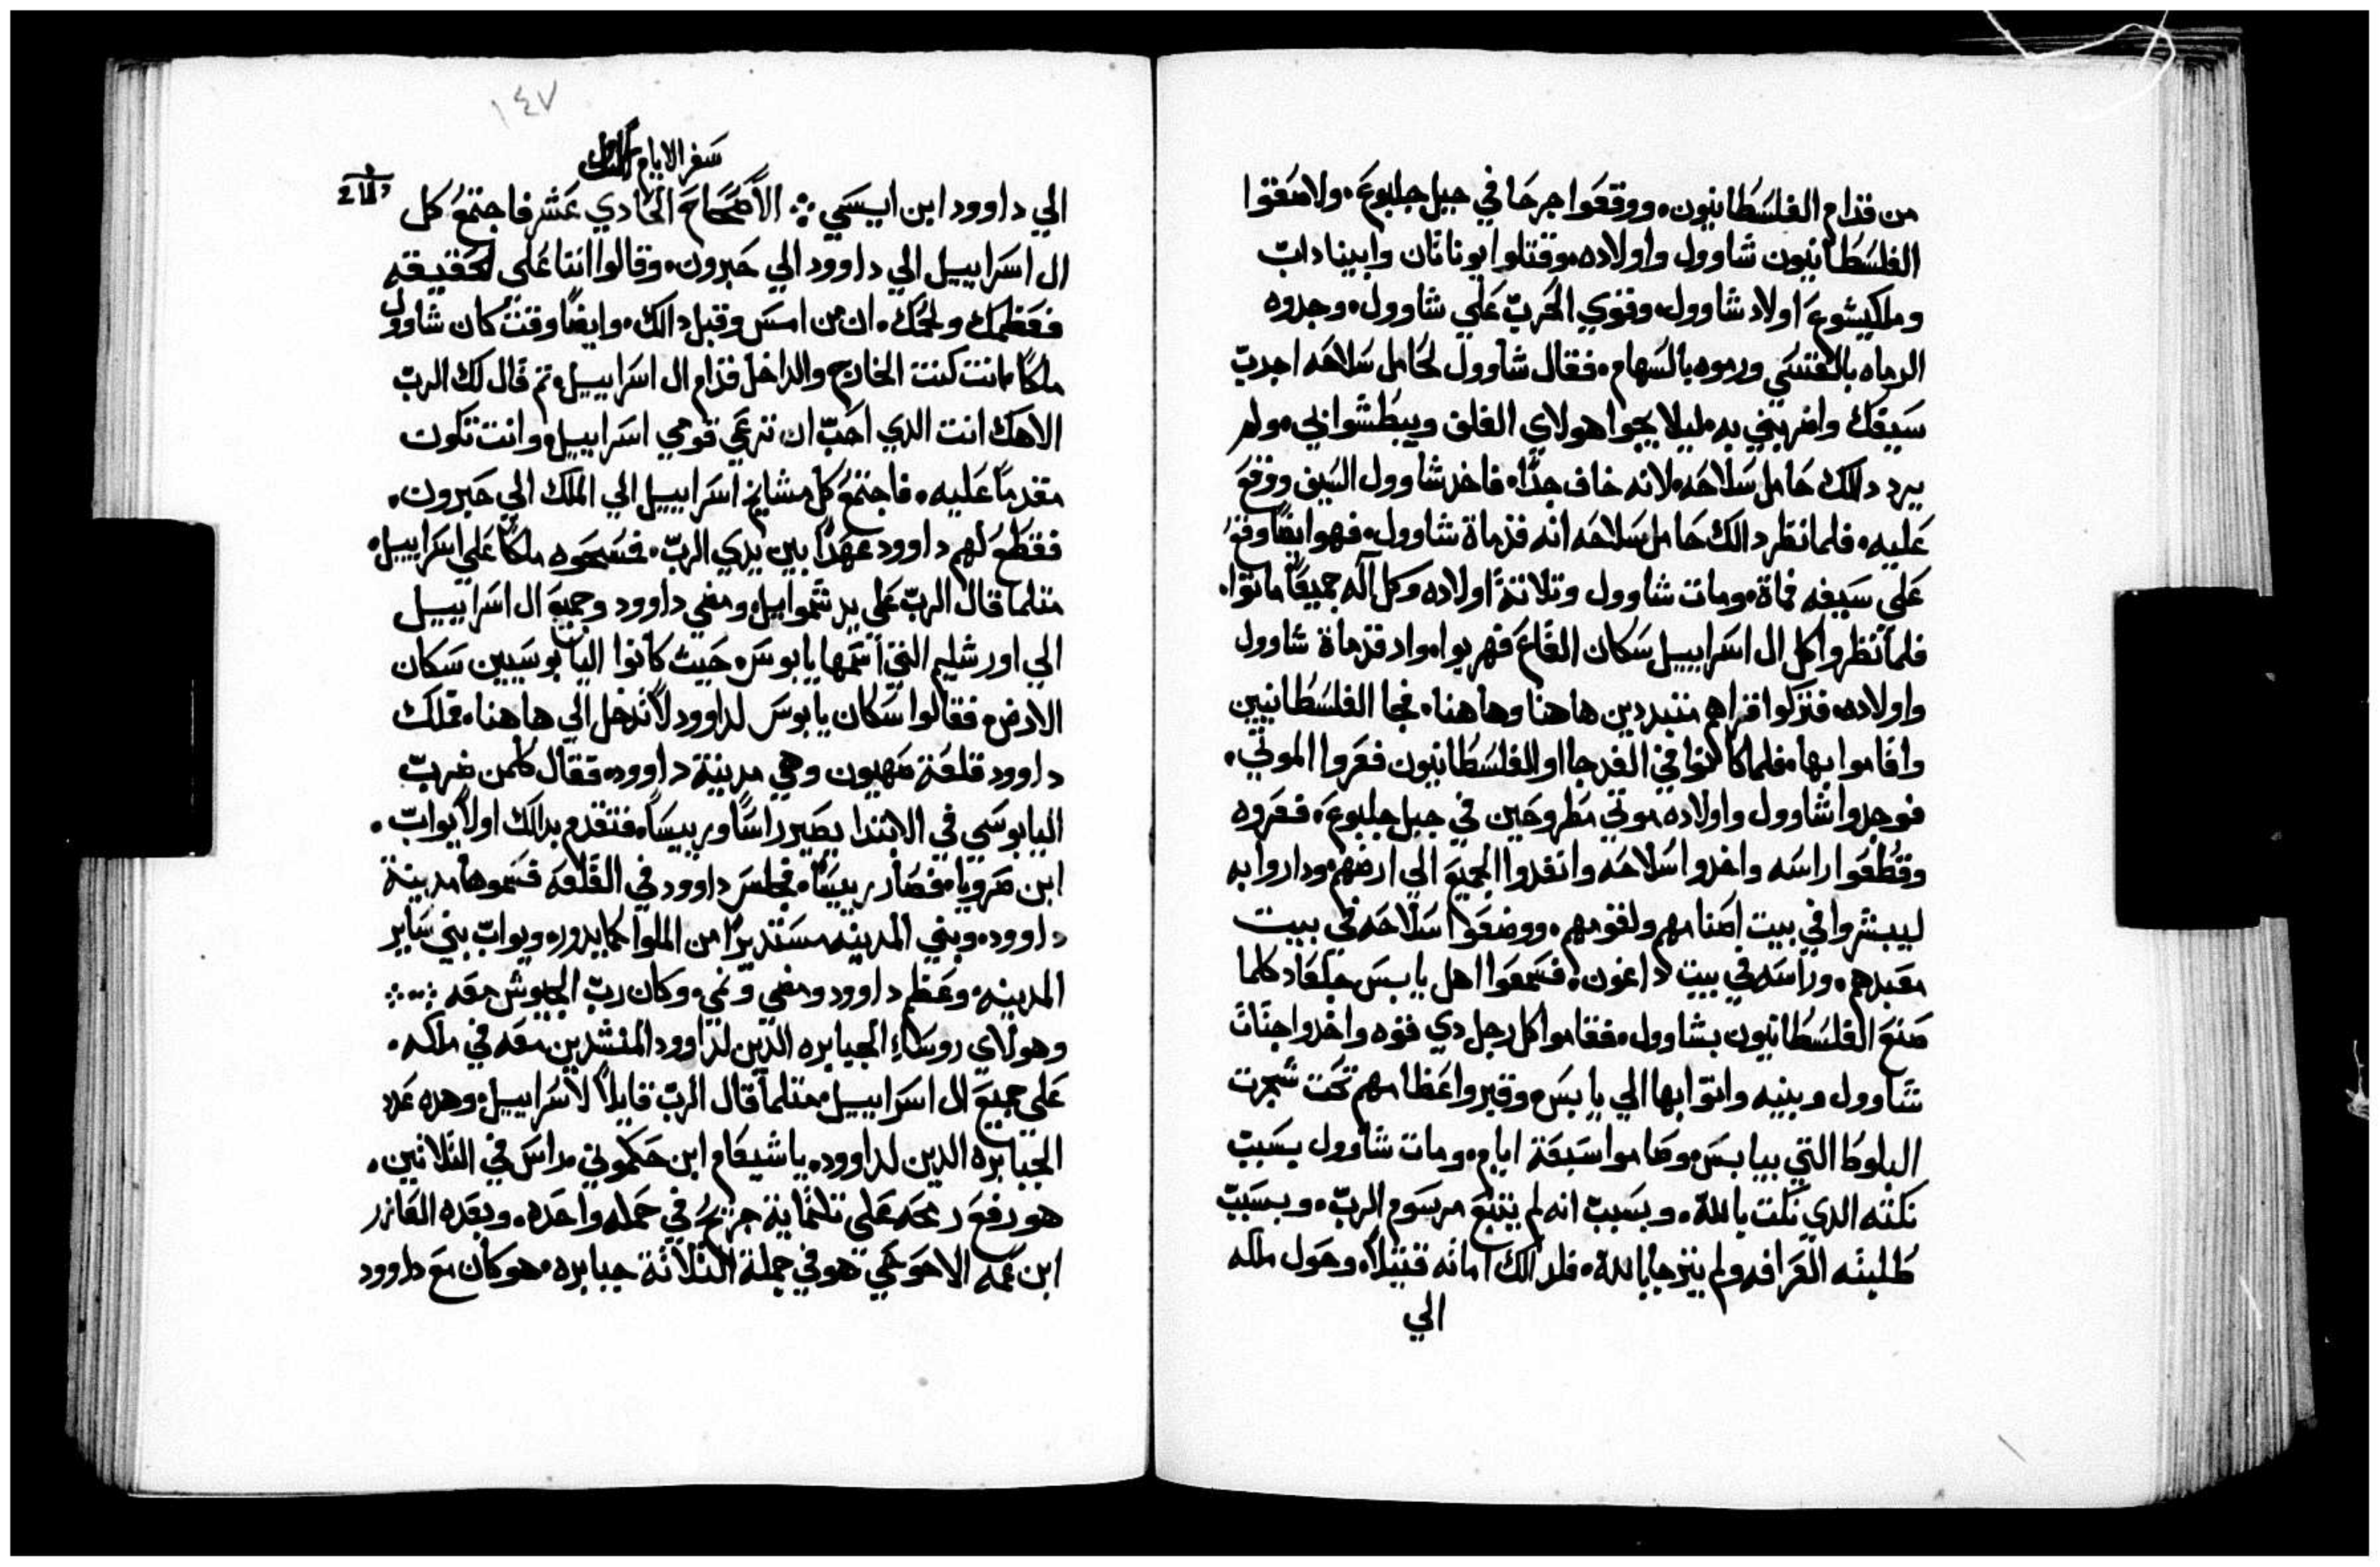 من قدام الفلسطانيون. ووقعوا جرحا في جبل جلبوع. ولاصقوا
الفلسطانيون شاوول واولاده. وقتلوا يوناتان وابيناداب
وملكيشوع اولاد شاوول. وقوي الحرب علي شاوول. وجدوه
الرماه بالقسي ورموه بالسهام. فقال شاوول لحامل سلاحه اجدب
سيفك واضربني به ليلا يجوا هولاي الغلف ويبطشوا بي. ولم
يرد دلك حامل سلاحه لانه خاف جدًا. فاخد شاوول السيف ووقع
عليه. فلما نظر دالك حامل سلاحه انه قد ماة شاوول. فهو ايضًا وقع
علي سيفه فماة. ومات شاوول وتلاتة اولاده وكل آله جميعًا ماتوا.
فلما نظروا كل ال اسراييل سكان القاع فهربوا. واد قد ماة شاوول
واولاده. فتركوا قراهم متبددين هاهنا وهاهنا. فجا الفلسطانيين
واقاموا بها. فلما كانوا في الغد جااو الفلسطانيون فعروا الموتي.
فوجدوا شاوول واولاده موتي مطروحين في جبل جلبوع. فعروه
وقطعوا راسه واخدوا سلاحه وانفدوا الجميع الي ارضهم. وداروا به
ليبشروا في بيت اصنامهم ولقومهم. ووضعوا سلاحه في بيت
معبدهم. وراسه في بيت داغون. فسمعوا اهل يابيس جلعاد كلما
صنع الفلسطانيون بشاوول. فقاموا كل رجل دي قوه واخدوا جتات
شاوول وبنيه واتوا بها الي يابس. وقبروا عظامهم تحت شجرت
البلوط التي بيابس. وصاموا سبعة ايام. ومات شاوول بسبب
نكته الدي نكت بالله. وبسبب انه لم يتبع مرسوم الرب. وبسبب
طلبته العرافه ولم يترجا بالله. فلدالك اماته قتيلًا. وحول ملكه
الي
١٤٧
سفر الايام الاول
الي داوود ابن ايسي الاصحاح الحادي عشر فاجتمع كل
ال اسراييل الي داوود الي حبرون. وقالوا اننا علي الحقيقه
فعظمك ولحمك. ان من امس وقبل دالك. وايضًا وقت كان شاوول
ملكًا. انت كنت الخارج والداخل قدام ال اسراييل. تم قال لك الرب
الاهك انت الدي احب ان ترعي قومي اسراييل. وانت تكون
مقدمًا عليه. فاجتمع كل مشايخ اسراييل الي الملك الي حبرون.
فقطع لهم داوود عهدًا بين يدي الرب. فمسحوه ملكًا علي اسراييل.
متلما قال الرب علي يد شموايل. ومضي داوود وجميع ال اسراييل
الي اورشليم التي اسمها يابوس. حيت كانوا اليابوسيين سكان
الارض. فقالوا سكان يابوس لداوود لا تدخل الي هاهنا. فملك
داوود قلعة صهيون وهي مدينة داوود. فقال كلمن ضرب
اليابوسي في الابتدا يصير راسًا وريسًا. فتقدم بدالك اولًا يواب.
ابن صرويا. فصار رييسًا. فجلس داوود في القلعه فسموها مدينة
داوود. وبني المدينه مستديرًا من الملوا كمايدور. ويواب بني ساير
المدينه. وعظم داوود ومضي ونمي. وكان رب الجيوش معه
وهولاي روساء الجبابره الدين لداوود المنشدين معه في ملكه.
علي جميع ال اسراييل متلما قال الرب قايلًا لاسراييل. وهده عدد
الجبابره الدين لداوود. ياشيعام ابن حكموني راس في التلاتين.
هو رفع رمحه علي تلتماية جريح في حمله واحده. وبعده العازر
ابن عمه الاحوحي هو في جملة التلاتة جبابره. هو كان مع داوود